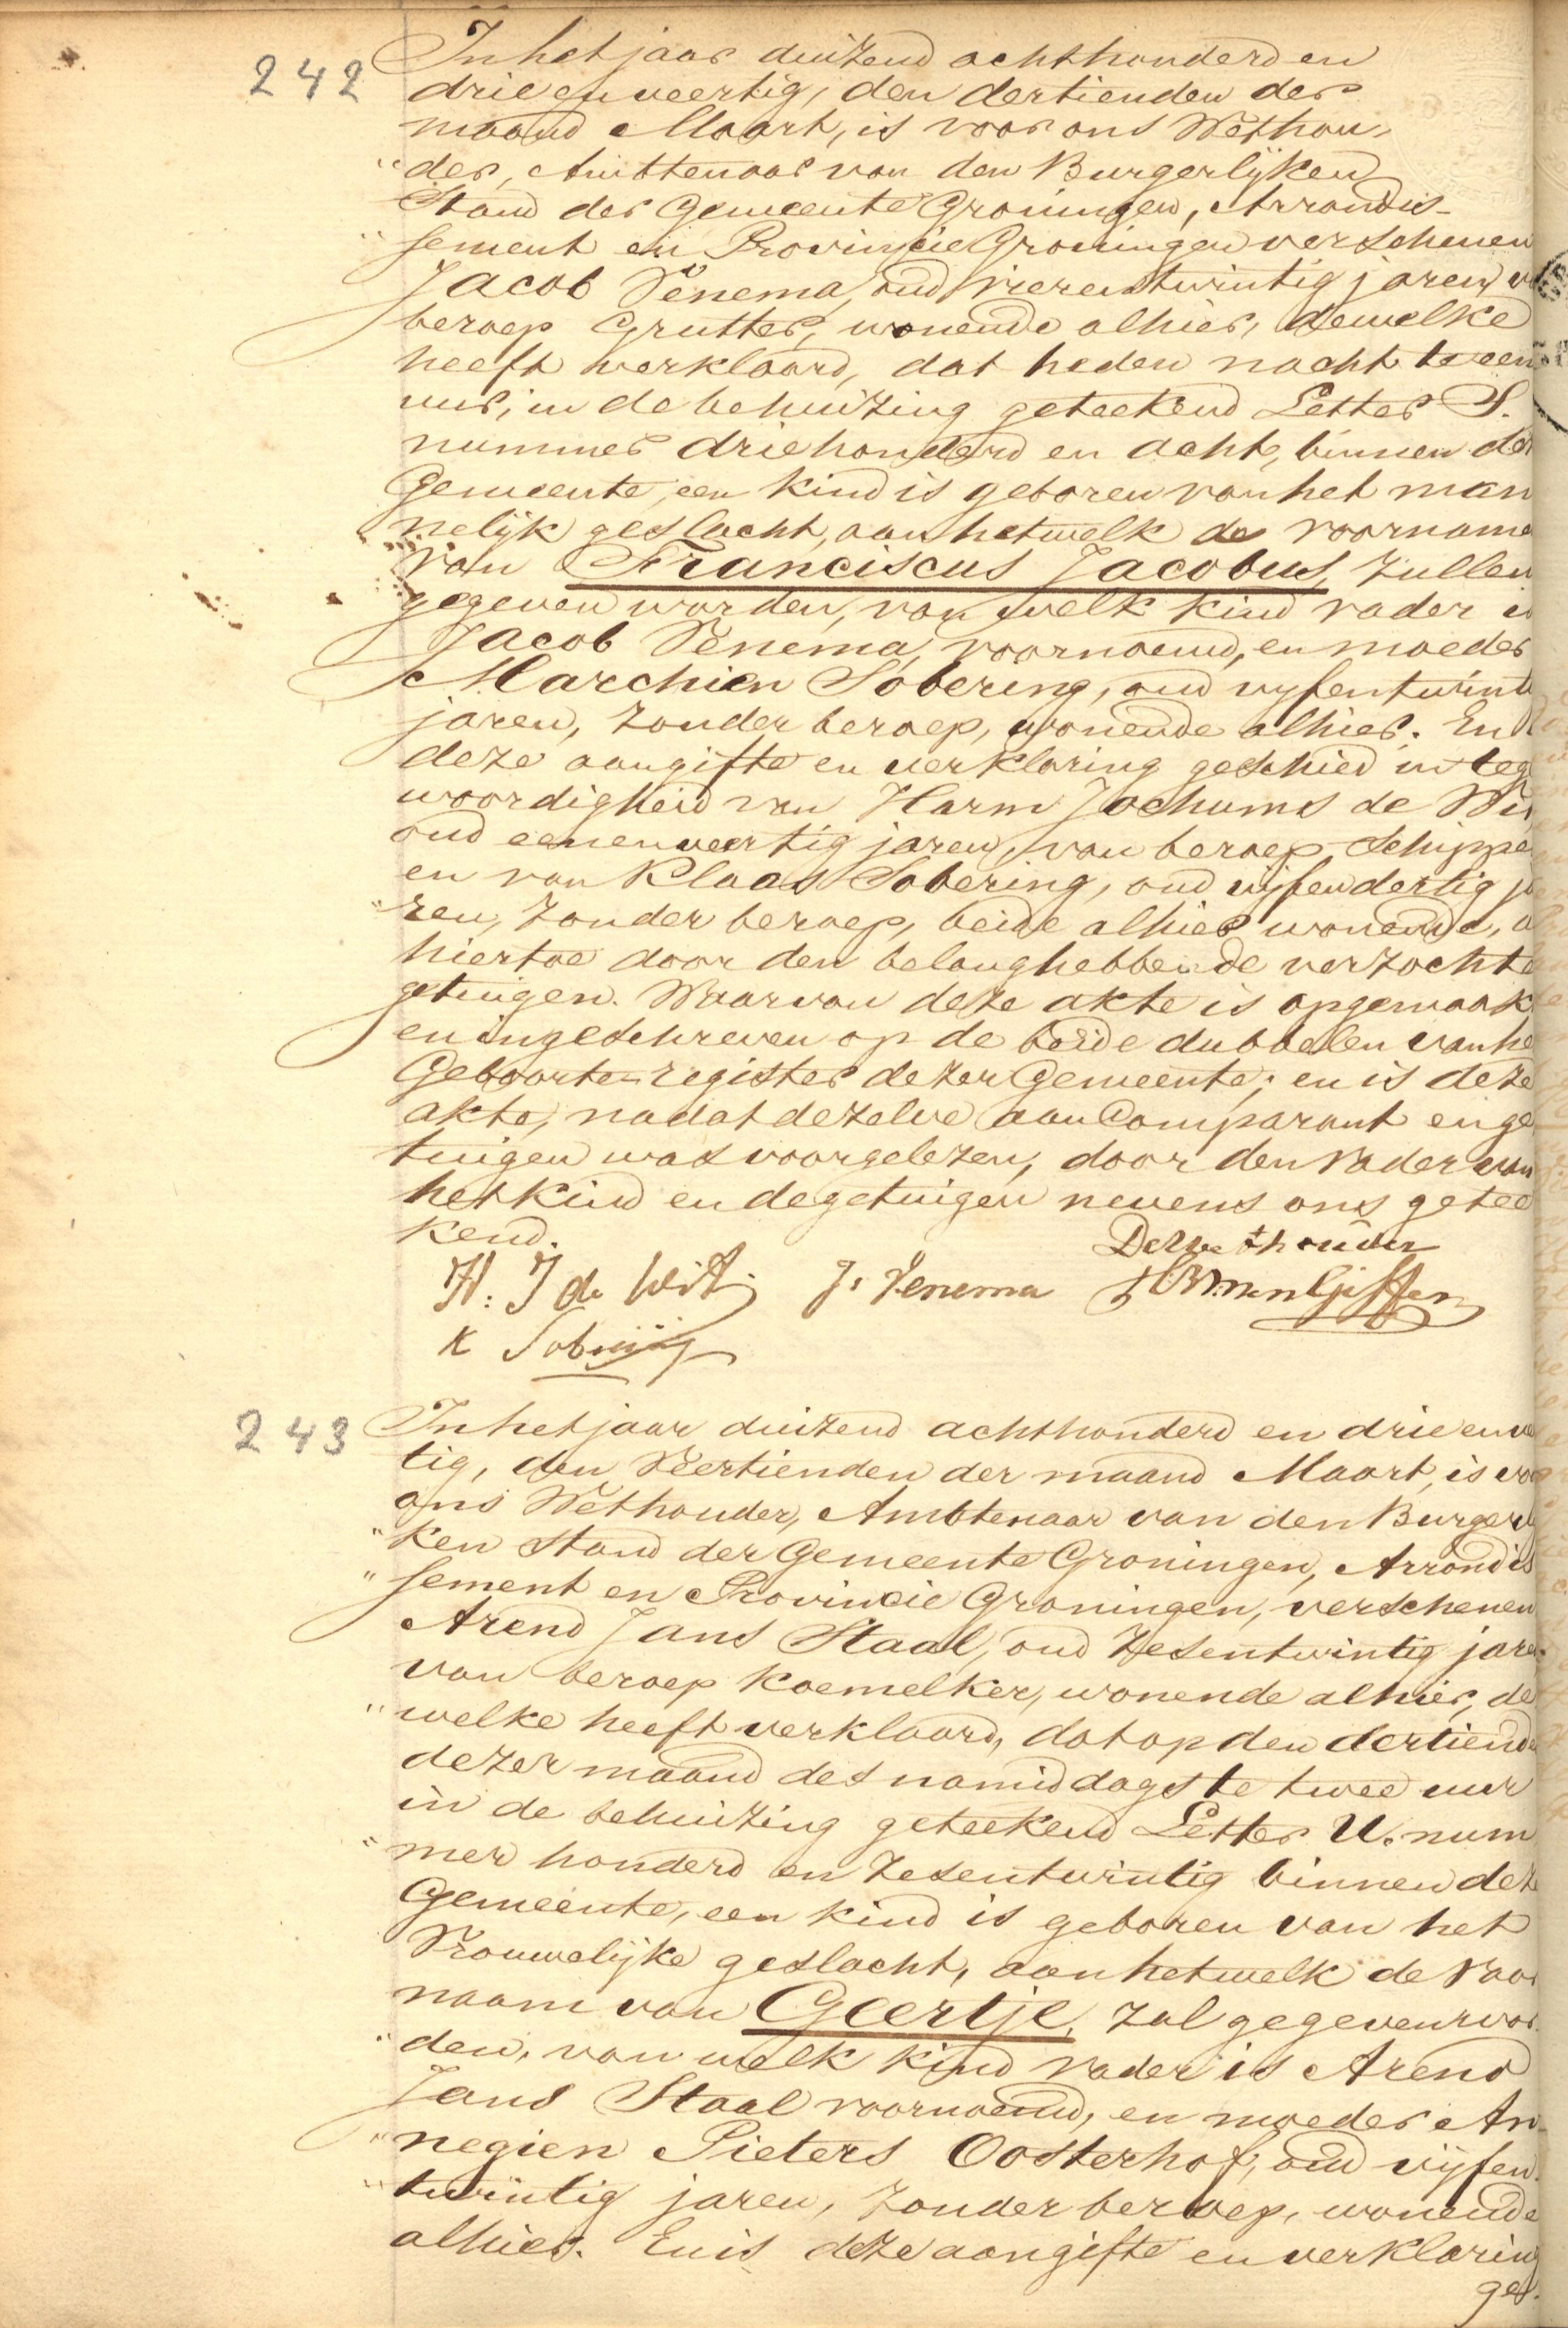 242
In het jaar duizend achthonderd en
drie en veertig, den dertienden der
maand Maart, is voor ons Wethou-
"der, Ambtenaar van den Burgerlijken
Stand der Gemeente Groningen, Arrondis-
"sement en Provincie Groningen verschenen
Jacob Venema, oud vierentwintig jaren, v
beroep Grutter, wonende alhier, dewelke
heeft verklaard, dat heden nacht te een
uur, in de behuizing geteekend Letter S.
nummer driehonderd en acht, binnen de
Gemeente, een kind is geboren van het man
nelijk geslacht, aan hetwelk de voorname
van Franciscus Jacobus, zullen
gegeven worden, van welk kind vader is
Jacob Venema, voornoemd, en moeder
Marchien Sobering, oud vyfentwint
jaren, zonder beroep, wonende alhier. En
deze aangifte en verklaring geschied in teg
woordigheid van Harm Jochums de Wi
oud eenenveertig jaren, van beroep Schippe
en van Klaas Sobering, oud vijfendertig ja
"ren, zonder beroep, beide alhier wonende, a
hiertoe door den belanghebbende verzochte
getuigen. Waarvan deze akte is opgemaak
en ingeschreven op de beide dubbelen van he
Geboorte-register dezer Gemeente; en is deze
akte, nadat dezelve aan Comparant en ge
tuigen was voorgelezen, door den vader van
het kind en de getuigen nevens ons getee
kend.
De Wethouder
H: J de Wit J: Venema
K Sobering
243
In het jaar duizend achthonderd en drie en ve
tig, den Veertienden der maand Maart, is voo
ons Wethouder, Ambtenaar van den Burgerl
"ken Stand der Gemeente Groningen, Arrondis
"sement en Provincie Groningen, verschenen
Arend Jans Staal, oud Zesentwintig jare
van beroep Koemelker, wonende alhier, de
"welke heeft verklaard, dat op den dertiende
dezer maand des namiddags te twee uur
in de behuizing geteekend Letter U. num
"mer honderd en zesentwintig binnen deze
Gemeente, een kind is geboren van het
Vrouwelijke geslacht, aan hetwelk de Voor
naam van Geertje, zal gegeven wor
"den, van welk kind vader is Arend
Jans Staal voornoemd, en moeder An-
"negien Pieters Oosterhof, oud vijfen-
"twintig jaren, zonder beroep, wonende
alhier. En is deze aangifte en verklaring
ges.